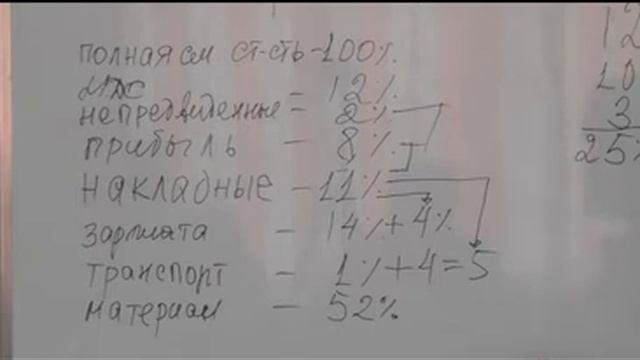 полная см ст-сть - 100%
НДС = 12%
непредвиденные = 2%
прибыль - 8%
накладные - 11%
зарплата - 14% + 4%
транспорт - 1% + 4 = 5
материал - 52%
12
10
3
25%